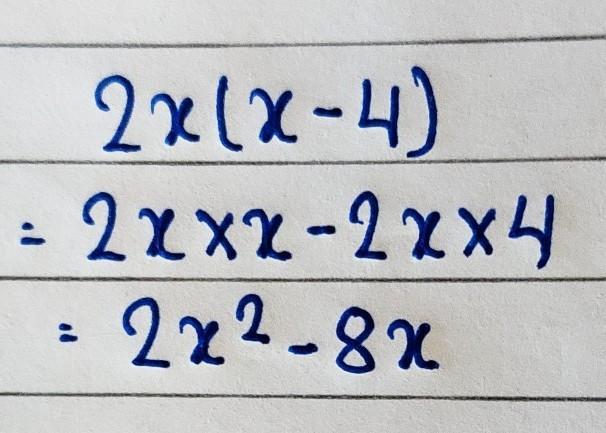 2x(x-4)
= 2x×x-2x×4
= 2x²-8x